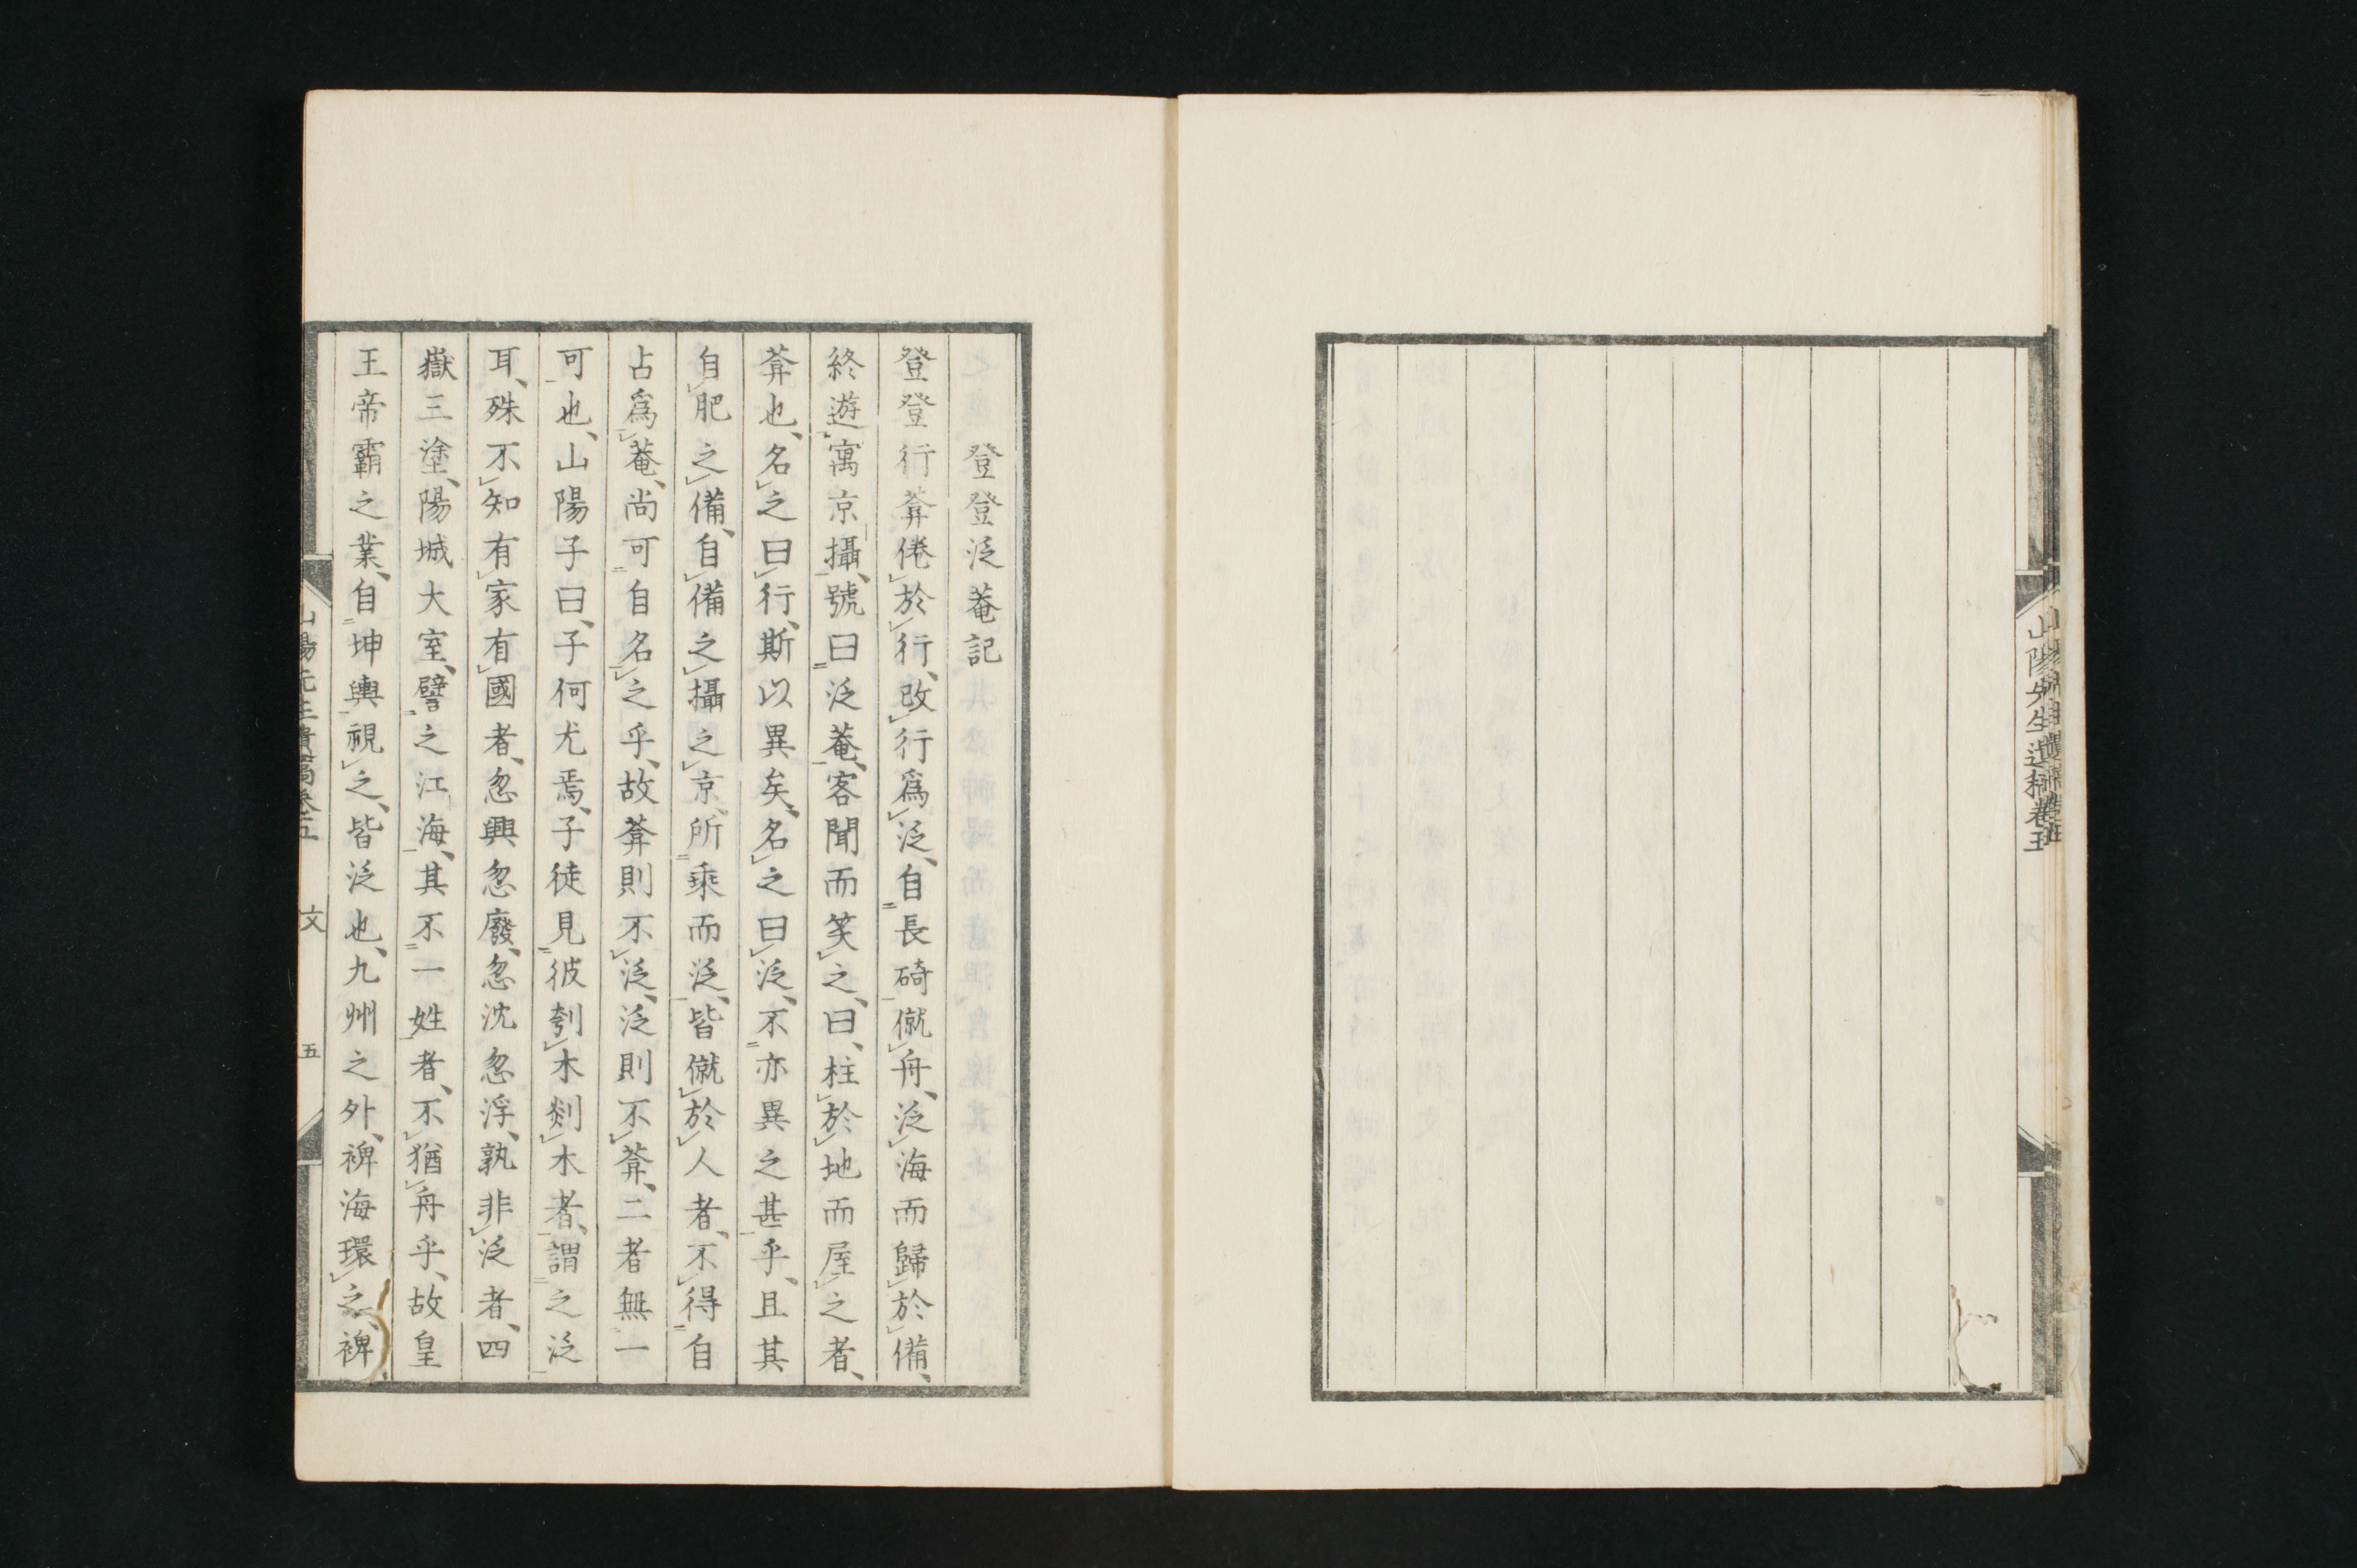 山陽先生遺稿卷五
登登泛菴記
登登行葊倦於行、改行爲泛、自長碕僦舟、泛海而歸於備、
終遊寓京攝、號曰泛菴、客聞而笑之、曰、柱於地而屋之者、
葊也、名之曰行、斯以異矣、名之曰泛、不亦異之甚乎、且其
自肥之備、自備之攝之京、所乘而泛、皆僦於人者、不得自
占爲菴、尚可自名之乎、故葊則不泛、泛則不葊、二者無一
可也、山陽子曰、子何尤焉、子徒見彼刳木剡木者、謂之泛
耳、殊不知有家有國者、忽興忽廢、忽沈忽浮、孰非泛者、四
嶽三塗、陽城大室、譬之江海、其不一姓者、不猶舟乎、故皇
王帝霸之業、自坤輿視之、皆泛也、九州之外、裨海環之、裨
山陽先生遺稿卷五 文 五